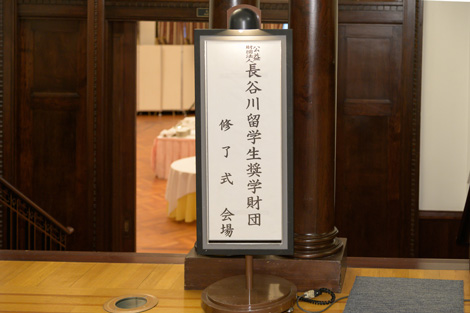 公益財団法人 長谷川留学生奨学財団
修了式 会場